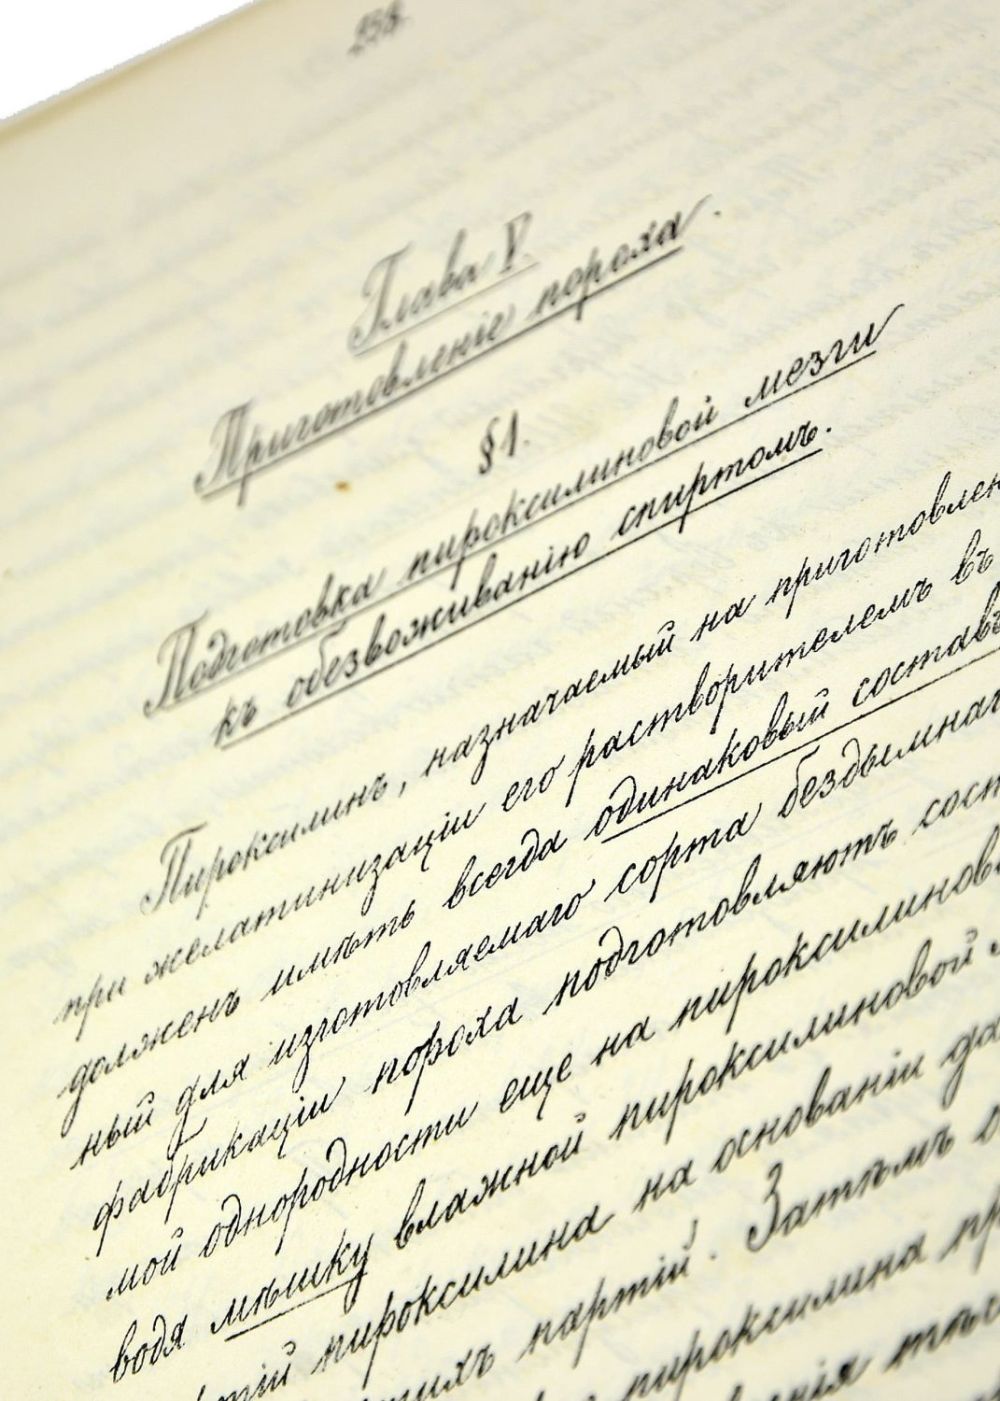 Глава V.
Приготовленіе пороха.
§ 1.
Подготовка пироксилиновой мезги
къ обезвоживанію спиртомъ.
Пироксилинъ, назначаемый на приготовлен
при желатинизаціи его растворителемъ въ
долженъ имѣть всегда одинаковый составъ
ный для изготовляемаго сорта бездымнаг
фабрикаціи пороха подготовляютъ сост
мой однородности еще на пироксилинов
водя мѣшку влажной пироксилиновой
пироксилина на основаніи да
партій. Затѣмъ
пироксилина пр